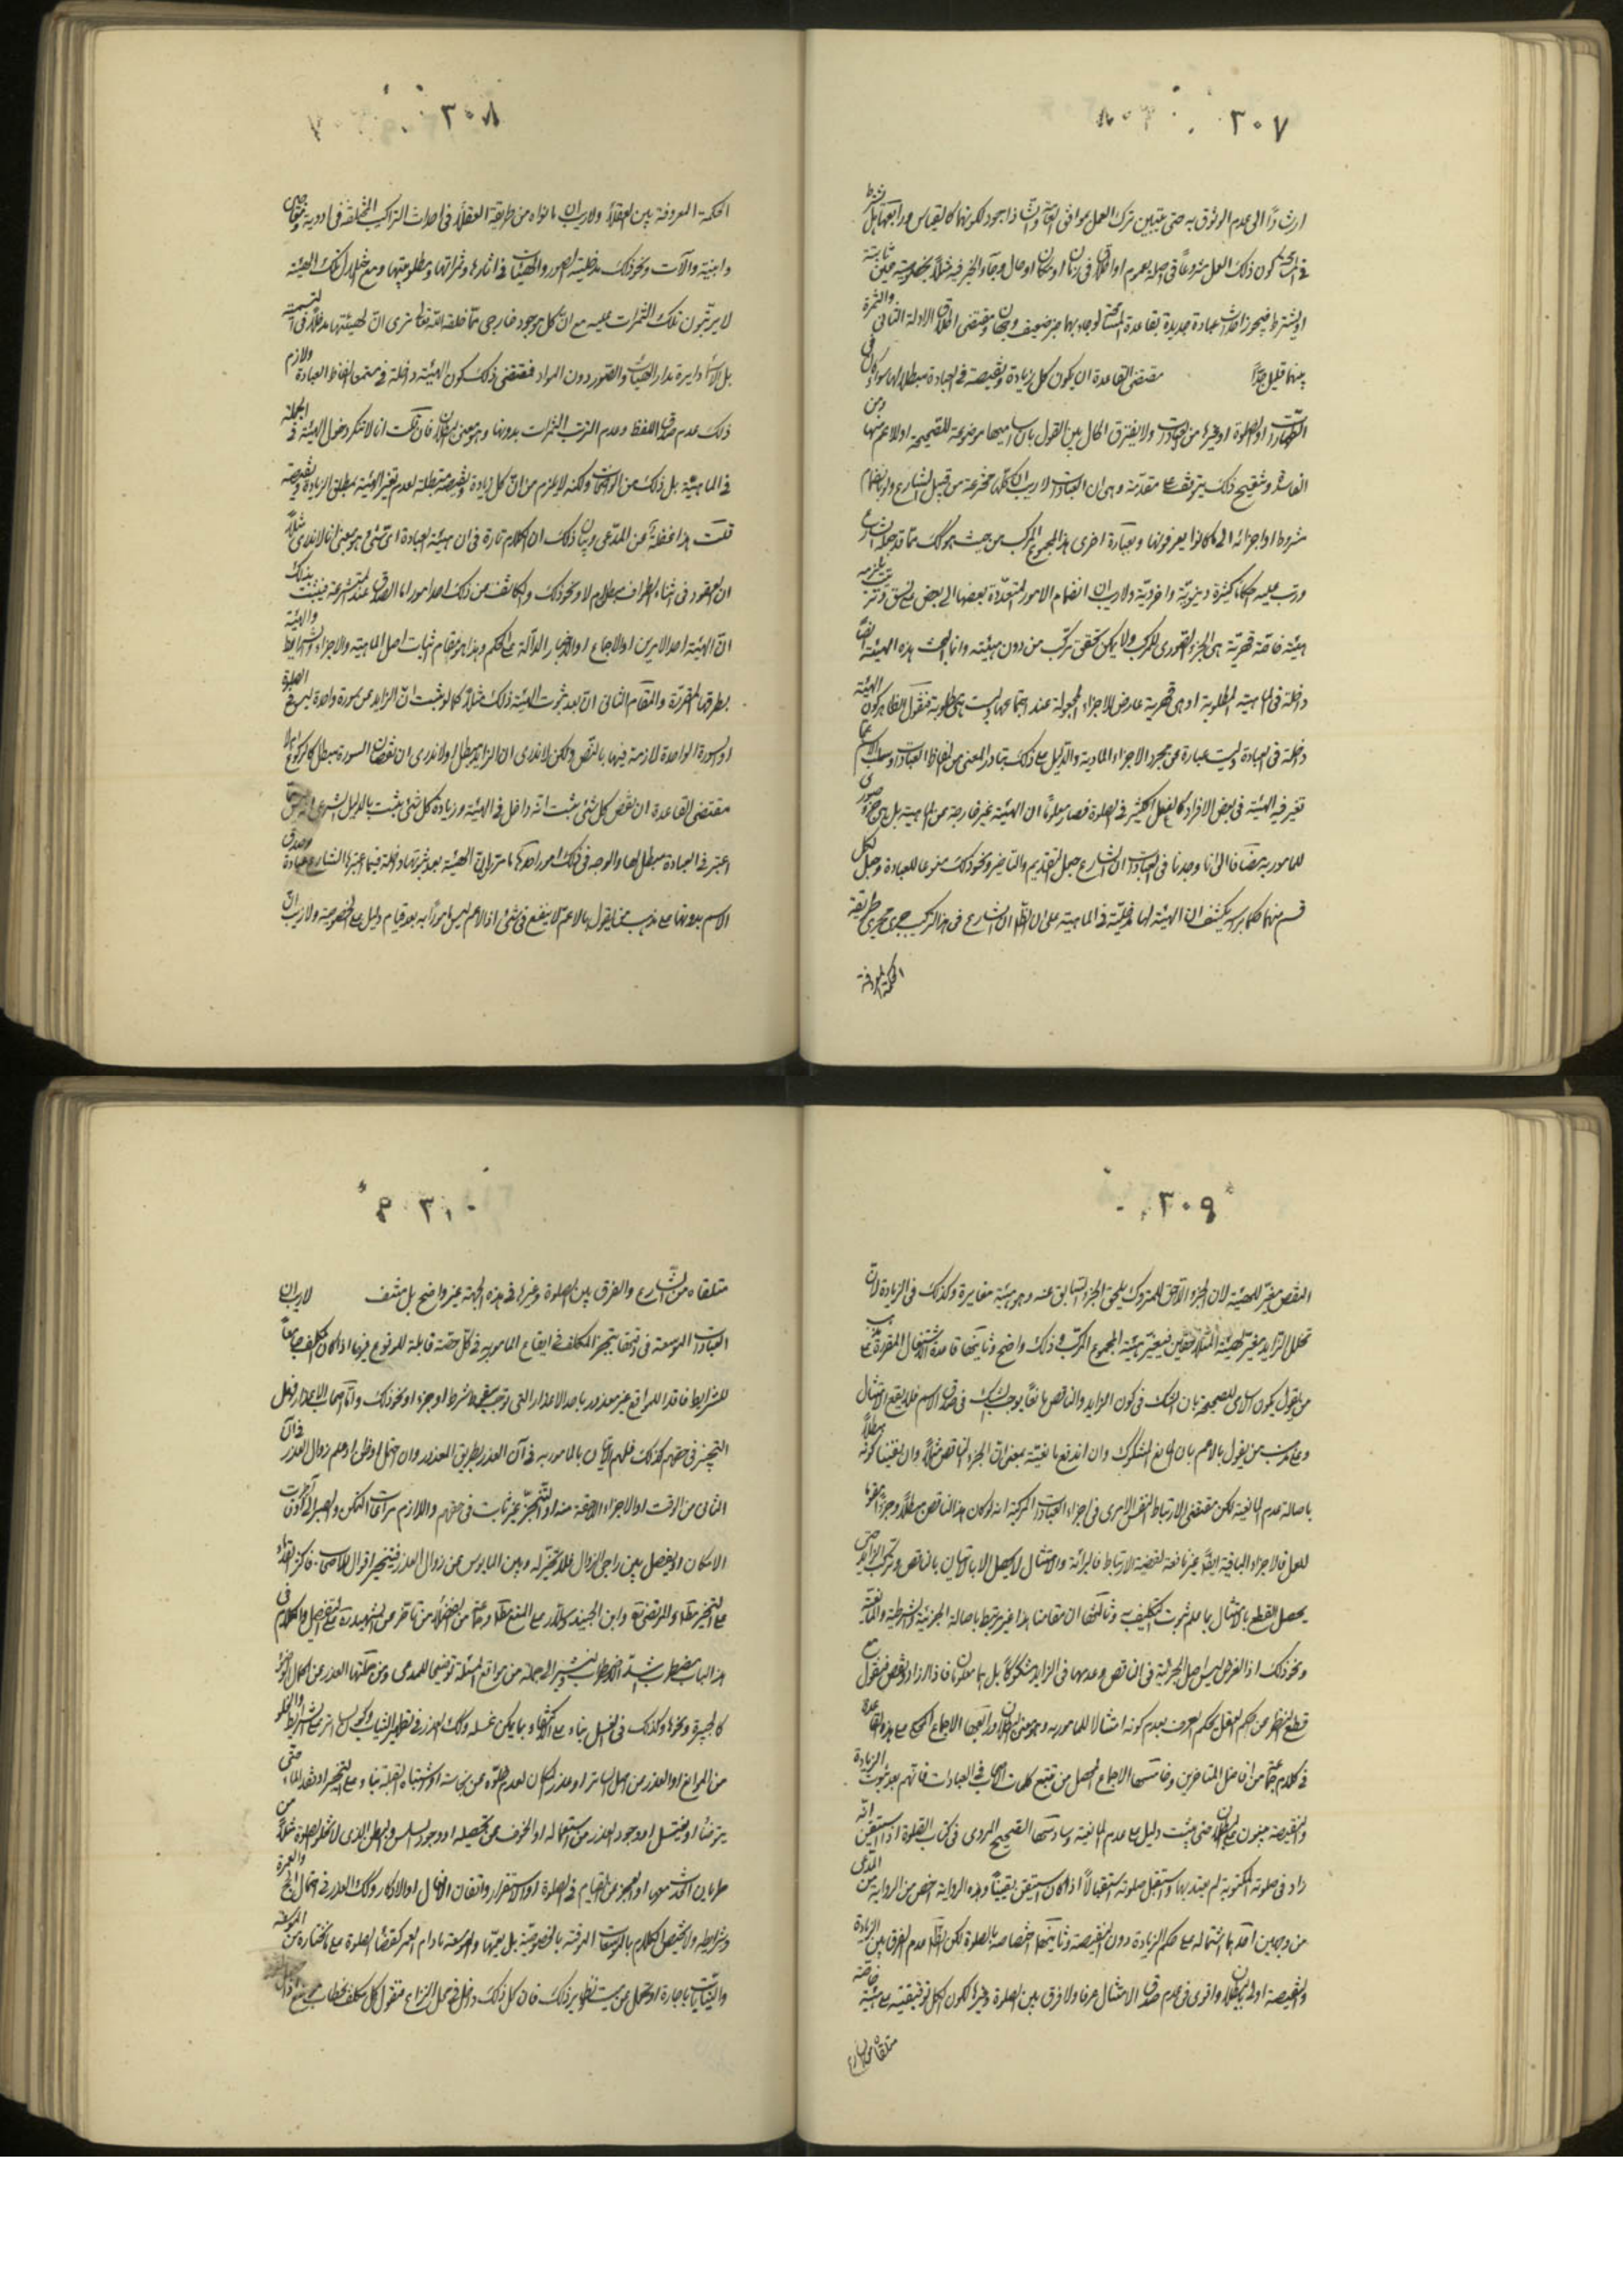 ٣٠٧
ارشادًا الى عدم الوثوق به حتى يتبين ترك العمل موافق اذا وجد لكونها كالقياس
كون ذلك العمل مشروعًا فى اصله بعموم او اطلاق فى زمان او مكان او حال وجاء الخبر فيه مثلًا بخصوصية معينة
او يشترط فيجوز احداث عبادة جديدة بقاعدة التسامح لو جاء بها خبر ضعيف وجهان ومقتضى اطلاق الادلة الثانى والثمرة
بينهما قليل جدًّا مقتضى القاعدة ان يكون كل زيادة ونقيصة فى العبادة مبطلا لها سواء كان فى
الطهارات او الصلوة او غيرها من العبادات ولا يفترق الحال بين القول بان اساميها موضوعة للصحيحة او للاعم منها ومن
الفاسدة وتنقيح ذلك يتوقف على مقدمة وهى ان العبادات لا ريب ان كلها مخترعة من قبل الشارع ولو بانضمام
شروط او اجزاء الى ما كانوا يعرفونها وبعبارة اخرى هذا المجموع المركب من حيث هو كك مما قد جعله الشارع
ورتب عليه احكامًا كثيرة دنيوية واخروية ولا ريب ان انضمام الامور المتعددة بعضها الى بعض على نسق وترتيب يلزمه
هيئة خاصة قهرية هى الجزء الصورى للمركب ولا يمكن تحقق تركب من دون هيئته وانما البحث هذه الهيئة ايضًا
داخلة فى الماهية المطلوبة او هى قهرية عارض للاجزاء المجعولة عند اجتماعها وليست هى مطلوبة فنقول الظاهر كون الهيئة
داخلة فى العبادة وليست عبارة عن مجرد الاجزاء المادية والدليل على ذلك تبادر المعنى من الفاظ العبادات وسلب الاسم عما
تغير فيه الهيئة فى بعض الافراد كالفعل الكثير فى الصلوة فصار معلومًا ان الهيئة غير خارجة عن الماهية بل هى جزء صورى
للمامور به مضافا الى انا وجدنا فى العبادات ان الشارع جعل التقديم والتاخير ونحو ذلك منوعا للعبادة وجعل لكل
قسم منهما حكما براسه يكشف ان الهيئة لها مدخلية فى الماهية على ان الظاهر ان الشارع فى هذا التركيب جرى مجرى طريقة
الحكمة المعروفة
٣٠٨
الحكمة المعروفة بين العقلاء ولا ريب ان ما نراه من طريقة العقلاء فى احداث التراكيب المختلفة فى ادوية ومعاجين
وابنية والآت ونحو ذلك مدخلية الصور والهيئات فى اثارها وثمراتها ومطلوبيتها ومع اختلال تلك الهيئة
لا يرتبون تلك الثمرات عليه مع ان كل موجود خارجى مما خلقه الله تعالى نرى ان لهيئتها مدخلًا فى التسمية
بل الاسماء دايرة مدار الهيئات والصور دون المواد فمقتضى ذلك كون الهيئة داخلة فى مسمى الفاظ العبادة ولازم
ذلك عدم صدق اللفظ وعدم الترتب الثمرات بدونها وهو معنى البطلان فان قلت انا لا ننكر دخول الهيئة فى الجملة
فى الماهية بل ذلك من الواضحات ولكنه لا يلزم من ان كل زيادة ونقيصة مبطلة لعدم تغير الهيئة بمطلق الزيادة والنقيصة
قلت هذا غفلة عن المدعى وبيان ذلك ان الكلام تارة فى ان هيئة العبادة اى شئ وهو بمعنى انا لا ندرى مثلًا
ان العقود فى اثناء الطواف مبطل ام لا ونحو ذلك والكاشف عن ذلك احد امور اما الصدق عند المتشرعة فيثبت بذلك
ان الهيئة احد الامرين او الاجماع او الاخبار الدالة على الحكم وهذا هو مقام اثبات اصل الماهية والاجزاء والشرايط والهيئة
بطرقها المقررة والمقام الثانى ان بعد ثبوت الهيئة ذلك مثلًا كما لو ثبت ان الزايد عن سورة واحدة ليس فى الصلوة
او السورة الواحدة لازمة فيها بالنص ولكن لا ندرى ان الزايد مبطل او لا ندرى ان نقصان السورة مبطل كالركوع ام لا
مقتضى القاعدة ان نقص كل شئ يثبت انه داخل فى الهيئة وزيادة كل شئ يثبت بالدليل الشرعى
اعتبر فى العبادة مبطل لها والوجه فى ذلك امور احدها ما مر ان الهيئة بعد ثبوتها داخلة فيما اعتبرها الشارع عبادة وصدق
الاسم بدونها على مذهب من يقول بالاعم لا ينفع فى شئ اذ الاعم ليس مامورًا به بعد قيام دليل على الخصوصية ولا ريب ان
٣٠٩
النقص مغير للهيئة لان الجزء اللاحق للمتروك يلحق الجزء السابق عنه وهو هيئة مغايرة وكذلك فى الزيادة لان
تخلل الزايد مغير لهيئة المتلاصقين فيتغير هيئة المجموع المركب وذلك واضح وثانيها قاعدة الاشتغال المقررة
من يقول بكون الاسامى للصحيحة بان الشك فى كون الزايد والناقص مانعًا يوجب الشك فى صدق الاسم فلا يقع الامتثال
وعلى مذهب من يقول بالاعم بان المانع المشكوك وان اندفع مانعيته بمعنى ان الجزء الناقص مثلًا وان نفينا كونه مبطلًا
باصالة عدم المانعية لكن مقتضى الارتباط النفس الامرى فى اجزاء العبادات المركبة انه لو كان هذا الناقص مبطلًا وجزءًا مقوما
للعمل فالاجزاء الباقية ايضًا غير نافعة لقضية الارتباط فالبرائة والامتثال لا يحصل الا بالاتيان بالناقص وترك الزايد حتى
يحصل القطع بالامتثال بما علم ثبوت التكليف به وثالثها ان مقامنا هذا غير مرتبط باصالة الجزئية والشرطية والمانعية
ونحو ذلك اذ الغرض ليس اصل الجزئية فى الناقص وعدمها فى الزايد مشكوكًا بل هما معلومان فاذا زاد او نقص فنقول مع
قطع النظر عن حكم العقل يحكم العرف بعدم كونه امتثالا للمامور به وهو معنى البطلان ورابعها الاجماع المحكى على هذه القاعدة
فى كلام جماعة من افاضل المتاخرين وخامسها الاجماع المحصل من تتبع كلمات الاصحاب فى العبادات فانهم بعد ثبوت الزيادة
والنقيصة يبنون على البطلان حتى يثبت دليل على عدم المانعية وسادسها الصحيح المروى فى كتاب الصلوة اذا استيقن انه
زاد فى صلوته المكتوبة لم يعتد بها واستقبل صلوته استقبالًا اذا كان استيقن يقينًا وهذه الرواية اخص من المدعى
من وجهين احدهما اشتماله على حكم الزيادة دون النقيصة وثانيهما اختصاصه بالصلوة لكن الظاهر عدم الفرق بين الزيادة
والنقيصة اولى بالبطلان واقوى فى عدم صدق الامتثال عرفا ولا فرق بين الصلوة وغيرها لكون الكل توقيفية على هيئة خاصة
متلقاة من الشارع
٣١٠
متلقاة من الشارع والفرق بين الصلوة وغيرها فى هذه الجهة غير واضح بل منتف لا ريب ان
العبادات الموسعة فى وقتها يتخير المكلف فى ايقاع المامور به فى كل حصة قابلة للوقوع فيها اذا كان المكلف جامعًا
للشرايط فاقدا للموانع غير معذور باحد الاعذار التى توجب سقوط شرط او جزء او نحو ذلك واما اصحاب الاعذار فهل
التخيير فى حقهم كذلك فلهم الاتيان بالمامور به فى آن العذر بطريق المعذور وان احتمل او ظن او علم زوال العذر فى الآن
الثانى من الوقت او الاجزاء اللاحقة منه او التخيير غير ثابت فى حقهم واللازم مراعات التمكن والصبر الى آخر وقت
الامكان او يفصل بين راجى الزوال فلا تخيير له وبين المايوس عن زوال العذر فيتخير اقوال للاصحاب فاكثر القدماء
على التخيير مطلقا والمرتضى وابن الجنيد وسلار على المنع مطلقا وجماعة من الفضلاء من تاخر عن الشهيد على التفصيل والكلام فى
هذا الباب مضطرب اشد اضطراب فلنشير الى جملة من مواقع المسئلة توضيحا للمدعى ومن جملتها العذر عن اكمال الوضوء
كالجبيرة ونحوها وكذلك فى الغسل بناء على اكتفاء بما يمكن غسله وكك العذر فى تطهير الثياب
من الموانع او العذر من اصل الساتر او عذر المكان لعدم خلوه عن نجاسة او اشتباه القبلة بناء على التخيير او فقد الماء حتى
يتوضأ او يغتسل او وجود العذر من استعماله او الخوف عن تحصيله او وجود السلس والبطن الذى لا تخلو الصلوة مثلًا من
طريان الحدث معها او العجز عن القيام فى الصلوة او الاستقرار واتقان الافعال او الاذكار وكك العذر فى اعمال الحج والعمرة
وشرايطه ولا يختص الكلام بالموسعات الموقتة بالخصوصية بل يعمها والموسعة ما دام العمر كقضاء الصلوة على المختار
والنيابات باجارة او تحمل عن ميت ونظير ذلك فان كل ذلك داخل فى محل النزاع فنقول كل مكلف بخطاب